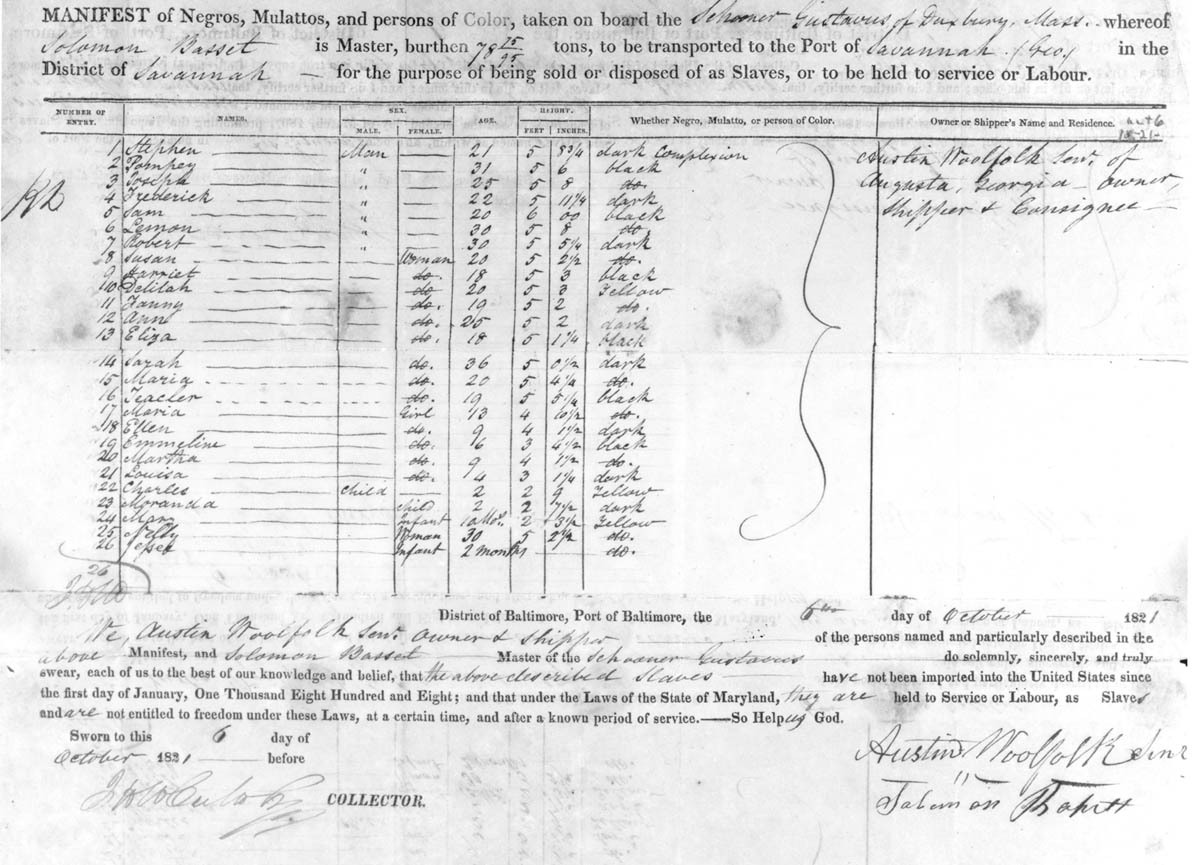 MANIFEST of Negros, Mulattos, and persons of Color, taken on board the Schooner Gustavus of Duxbury, Mass. whereof
Solomon Basset is Master, burthen 78 75/95 tons, to be transported to the Port of Savannah (Geo) in the
District of Savannah — for the purpose of being sold or disposed of as Slaves, or to be held to service or Labour.
NUMBER OF ENTRY. NAMES. SEX. MALE. FEMALE. AGE. HEIGHT. FEET INCHES. Whether Negro, Mulatto, or person of Color. Owner or Shipper's Name and Residence.
1 Stephen Man 21 5 8 3/4 dark Complexion Austin Woolfolk Senr of
2 Pompey " 31 5 6 black Augusta, Georgia — owner,
3 Joseph " 25 5 8 do. Shipper & Consignee —
4 Frederick " 22 5 11 1/4 dark
5 Sam " 20 6 00 black
6 Lemon " 30 5 8 do
7 Robert " 30 5 5 1/4 dark
8 Susan Woman 20 5 2 1/2 do.
9 Harriet do. 18 5 3 black
10 Delilah do 20 5 3 Yellow
11 Fanny do. 19 5 2 do.
12 Ann do. 25 5 2 dark
13 Eliza do. 18 5 1 1/4 black
14 Sarah do. 36 5 0 1/2 dark
15 Maria do. 20 5 4 1/4 do.
16 Teacher do. 19 5 5 1/4 black
17 Maria Girl 13 4 10 1/2 do.
18 Ellen do. 9 4 1 1/2 dark
19 Emmeline do. 6 3 4 1/2 black
20 Martha do. 9 4 1 1/2 do.
21 Louisa do. 4 3 1 1/4 dark
22 Charles child 2 2 9 Yellow
23 Moranda Child 2 2 7 1/2 dark
24 Mary Infant 10 Mos. 2 3 1/2 Yellow
25 Nelly Woman 30 5 2 1/2 do.
26 Infant 2 months do.
26
District of Baltimore, Port of Baltimore, the 6th day of October 1821
We, Austin Woolfolk Senr Owner & Shipper of the persons named and particularly described in the
above Manifest, and Solomon Basset Master of the Schooner Gustavus do solemnly, sincerely, and truly
swear, each of us to the best of our knowledge and belief, that the above described slaves have not been imported into the United States since
the first day of January, One Thousand Eight Hundred and Eight; and that under the Laws of the State of Maryland, they are held to Service or Labour, as Slaves
and are not entitled to freedom under these Laws, at a certain time, and after a known period of service.——So Help us God.
Sworn to this 6 day of
October 1821 before
COLLECTOR.
Austin Woolfolk Senr